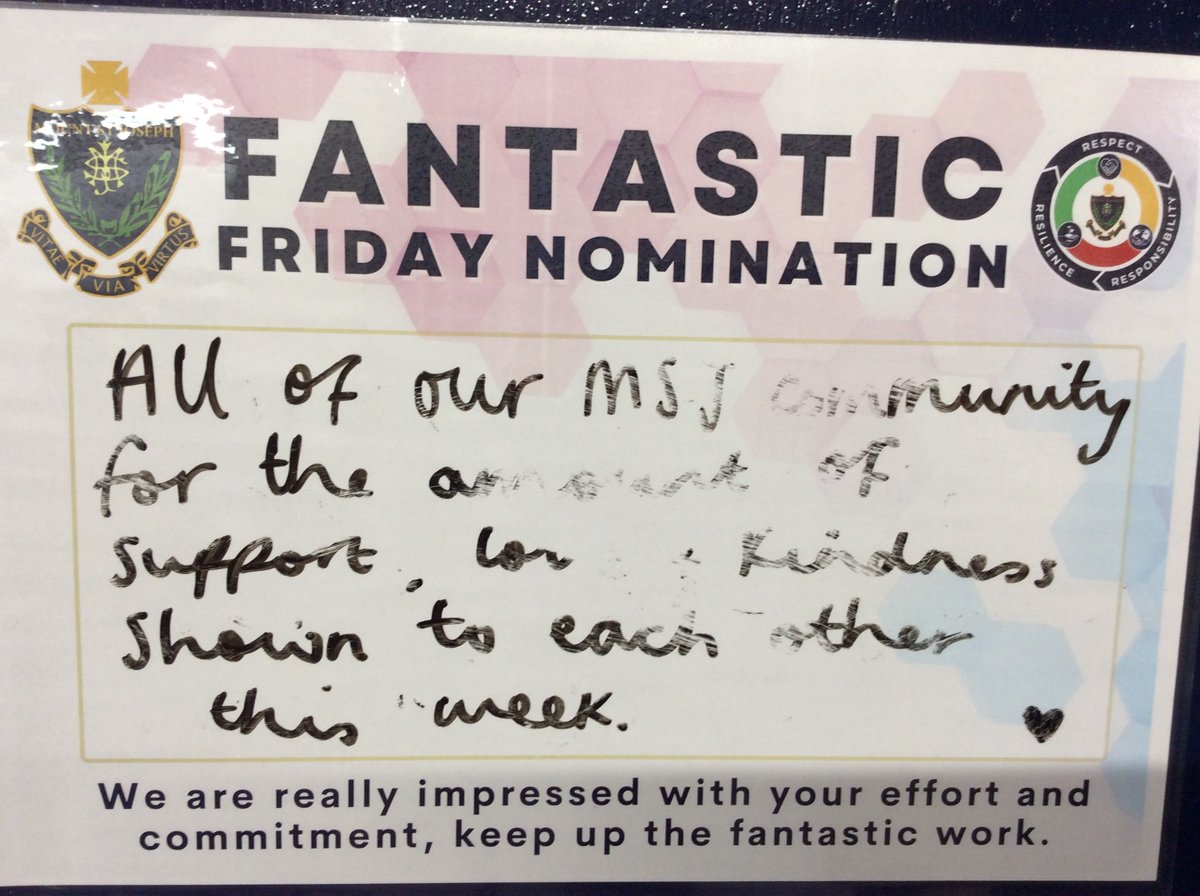 MOUNT ST JOSEPH
VITAE VIA VIRTUS
FANTASTIC
FRIDAY NOMINATION
RESPECT
RESPONSIBILITY
RESILIENCE
All of our MSJ community
for the amount of
support, Kindness
Shown to each other
this week.
We are really impressed with your effort and
commitment, keep up the fantastic work.